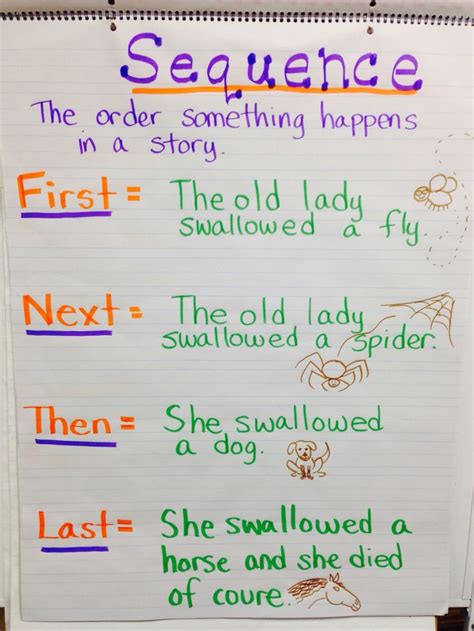 Sequence
The order something happens
in a story.
First = The old lady
swallowed a fly.
Next = The old lady
swallowed a spider.
Then = She swallowed
a dog.
Last = She swallowed a
horse and she died
of coure.